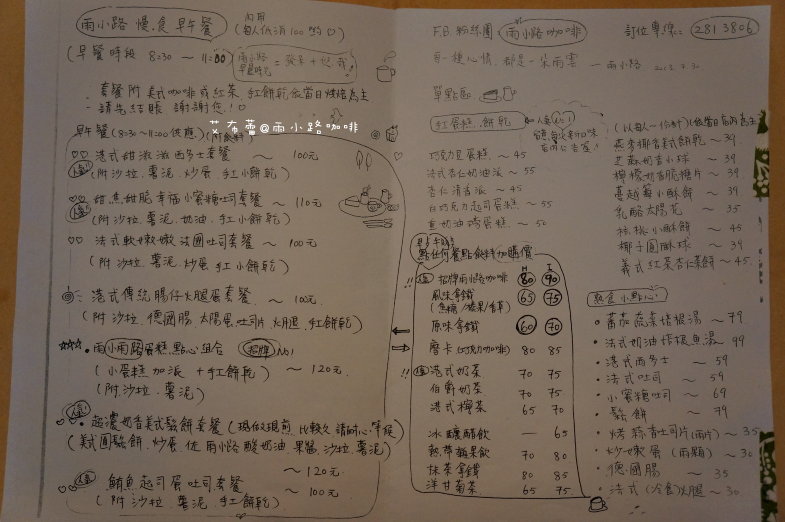 雨小路 慢.食 早午餐
內用
(每人低消100元)
(早餐時段 8:30 ~ 11:00)
雨小路
早餐時光
= 發呆 + 悠哉!
套餐附美式咖啡或紅茶,手工餅乾依當日烘焙為主
請先結帳 謝謝您!
艾布蕾@雨小路咖啡
早午餐 (8:30~11:00供應) (附飲料)
港式甜滋滋西多士套餐 ~ 100元
人氣
(附沙拉.薯泥.炒蛋.手工小餅乾)
甜焦甜脆幸福小蜜糖吐司套餐 ~ 110元
人氣
(附沙拉.薯泥.奶油.手工小餅乾)
法式軟嫩嫩法國吐司套餐 ~ 100元
(附沙拉.薯泥.炒蛋.手工小餅乾)
港式傳統腸仔火腿蛋套餐 ~ 100元
(附沙拉.德國腸.太陽蛋.吐司片.火腿.手工餅乾)
雨小路蛋糕.點心組合 招牌 No1
(小蛋糕加派 + 手工餅乾) ~ 120元
(附.沙拉.薯泥)
人氣
超濃奶香美式鬆餅套餐 (現做現煎 比較久 請耐心等候)
(美式圓鬆餅.炒蛋.佐雨小路酸奶油.果醬.沙拉.薯泥)
~ 120元
人氣
鮪魚起司蛋吐司套餐 ~ 100元
(附沙拉.薯泥.手工餅乾)
F.B.粉絲團: 雨小路咖啡
訂位專線:: 2813806
每一種心情.都是一朵雨雲 — 雨小路
單點區
手工蛋糕.餅乾
人氣 No1
巧克力豆蛋糕 ~ 45
法式杏仁奶油派 ~ 55
杏仁清香派 ~ 45
白巧克力起司蛋糕 ~ 55
真奶油磅蛋糕 ~ 50
(以每人一份計) (依當日店內為主)
燕麥椰香美式餅乾 ~ 39
芝麻奶香小球 ~ 39
檸檬奶香脆糖片 ~ 39
蔓越莓小酥餅 ~ 39
乳酪太陽花 ~ 35
核桃小酥餅 ~ 45
椰子圓酥球 ~ 39
義式紅茶杏仁茶餅 ~ 45
點任何餐點飲料加購價
H I
人氣 招牌雨小路咖啡 80 90
風味拿鐵 65 75
(焦糖/榛果/香草)
原味拿鐵 60 70
摩卡(巧克力咖啡) 80 85
人氣 港式奶茶 70 75
伯爵奶茶 70 75
港式檸茶 65 70
冰釀醋飲 — 65
熱帶蘋果飲 70 80
抹茶拿鐵 80 85
洋甘菊茶 65 75
熱食小點心!
蕃茄蔬菜括根湯 ~ 79
法式奶油括根魚湯 ~ 99
港式西多士 ~ 59
法式吐司 ~ 59
小蜜糖吐司 ~ 69
鬆餅 ~ 79
烤蒜香吐司片 (兩片) ~ 35
炒嫩蛋 (兩顆) ~ 30
德國腸 ~ 35
法式(冷食)火腿 ~ 30